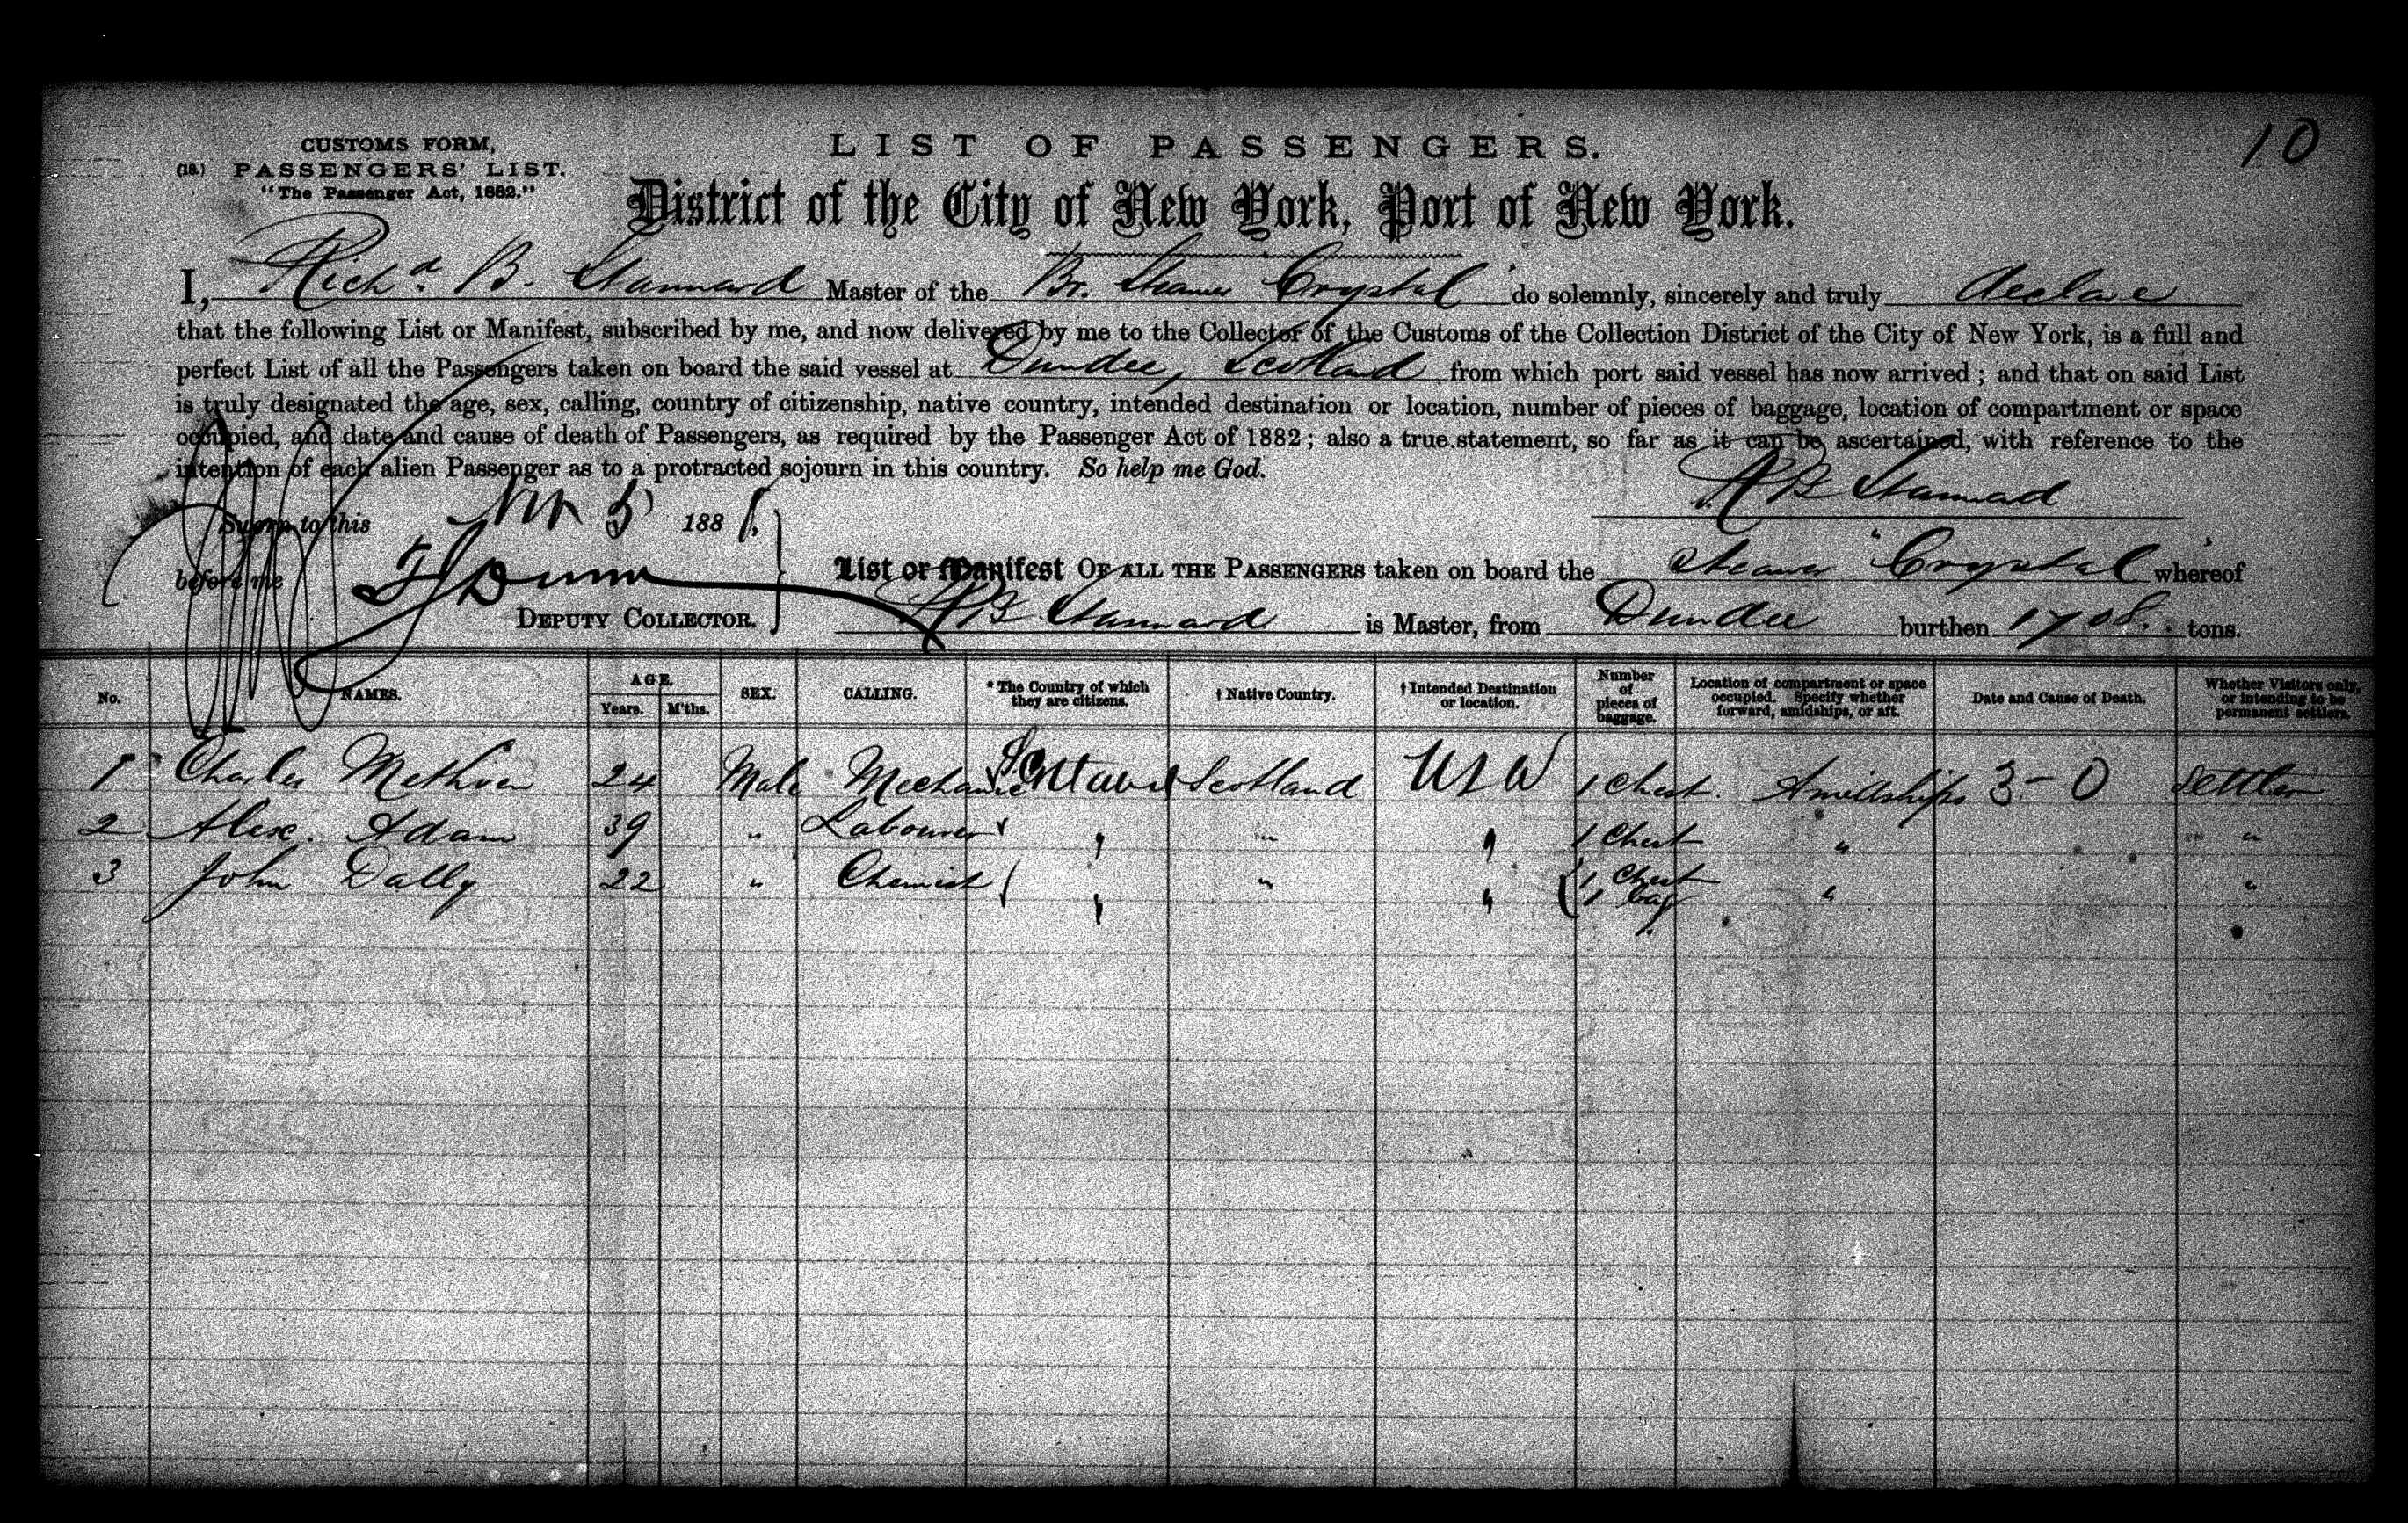 10
CUSTOMS FORM,
(18.) PASSENGERS' LIST.
"The Passenger Act, 1882."
LIST OF PASSENGERS.
District of the City of New York, Port of New York.
I, Richd. B. Stannard Master of the Br. Steamer "Crystal" do solemnly, sincerely and truly declare
that the following List or Manifest, subscribed by me, and now delivered by me to the Collector of the Customs of the Collection District of the City of New York, is a full and
perfect List of all the Passengers taken on board the said vessel at Dundee, Scotland from which port said vessel has now arrived; and that on said List
is truly designated the age, sex, calling, country of citizenship, native country, intended destination or location, number of pieces of baggage, location of compartment or space
occupied, and date and cause of death of Passengers, as required by the Passenger Act of 1882; also a true statement, so far as it can be ascertained, with reference to the
intention of each alien Passenger as to a protracted sojourn in this country. So help me God.
R B Stannard
Sworn to this Nov 5 188
before me
DEPUTY COLLECTOR.
List or Manifest OF ALL THE PASSENGERS taken on board the Steamer "Crystal" whereof
R B Stannard is Master, from Dundee burthen 1708. tons.
No. NAMES. AGE. Years. M'ths. SEX. CALLING. * The Country of which they are citizens. † Native Country. † Intended Destination or location. Number of pieces of baggage. Location of compartment or space occupied. Specify whether forward, amidships, or aft. Date and Cause of Death. Whether Visitors only, or intending to be permanent settlers.
1 Charles Methven 24 Male Mechanic Scotland Scotland USA 1 Chest. Amidships 3-0 Settler
2 Alex. Adam 39 " Labourer " " " 1 Chest " "
3 John Dally 22 " Chemist " " " 1 Chest " "
1 bag